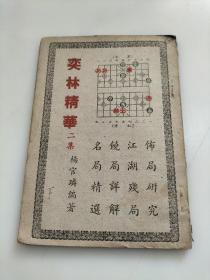 奕林精華
二集
楊官璘編著
佈局研究
江湖殘局
饒局詳解
名局精選